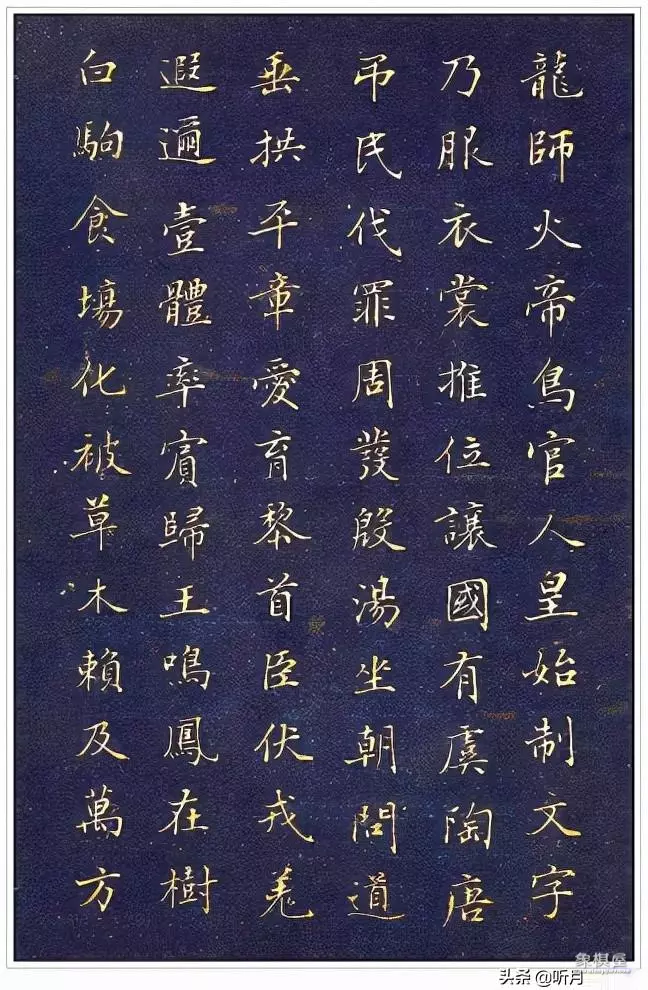 龍師火帝鳥官人皇始制文字
乃服衣裳推位讓國有虞陶唐
弔民伐罪周發殷湯坐朝問道
垂拱平章愛育黎首臣伏戎羌
遐邇壹體率賓歸王鳴鳳在樹
白駒食場化被草木賴及萬方
象棋屋
头条 @听月